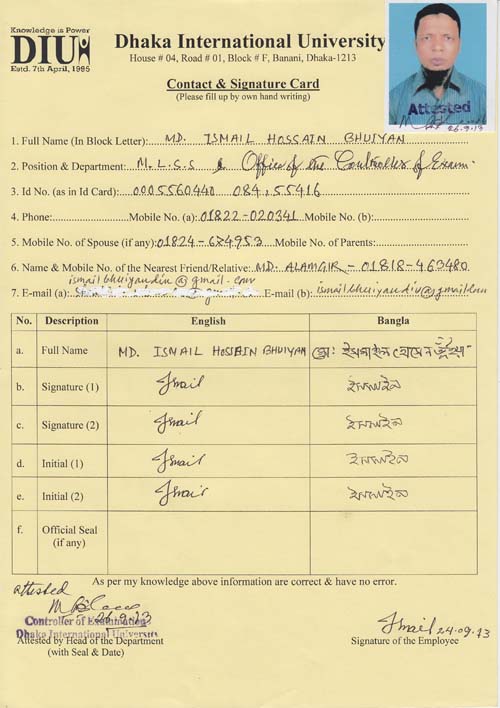 Knowledge is Power
DIU
Estd. 7th April, 1995
Dhaka International University
House # 04, Road # 01, Block # F, Banani, Dhaka-1213
Contact & Signature Card
(Please fill up by own hand writing)
Attested
26.9.13
1. Full Name (In Block Letter): MD. ISMAIL HOSSAIN BHUIYAN
2. Position & Department: M.L.S.S & Office of the Controller of Exam.
3. Id No. (as in Id Card): 0005560440 084,55416
4. Phone: Mobile No. (a): 01822-020341 Mobile No. (b):
5. Mobile No. of Spouse (if any): 01824-684953 Mobile No. of Parents:
6. Name & Mobile No. of the Nearest Friend/Relative: MD. ALAMGIR - 01818-463480
ismailbhuiyandiu@gmail.com
7. E-mail (a): E-mail (b): ismailbhuiyandiu@gmail.com
No. Description English Bangla
a. Full Name MD. ISMAIL HOSSAIN BHUIYAN মো: ইসমাইল হোসেন ভূঁইয়া
b. Signature (1) Ismail ইসমাইল
c. Signature (2) Ismail ইসমাইল
d. Initial (1) Ismail ইসমাইল
e. Initial (2) Ismail ইসমাইল
f. Official Seal (if any)
As per my knowledge above information are correct & have no error.
attested
26.9.13
Controller of Examination
Dhaka International University
Attested by Head of the Department
(with Seal & Date)
Ismail 24.09.13
Signature of the Employee